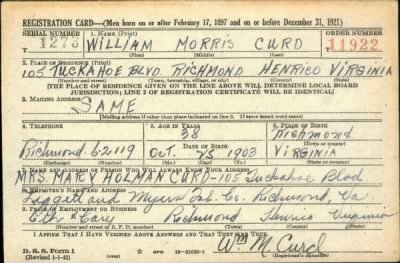 REGISTRATION CARD—(Men born on or after February 17, 1897 and on or before December 31, 1921)
SERIAL NUMBER 1. NAME (Print) ORDER NUMBER
1273 WILLIAM MORRIS CURD 11922
(First) (Middle) (Last)
2. PLACE OF RESIDENCE (Print)
105 TUCKAHOE BLVD RICHMOND HENRICO VIRGINIA
[THE PLACE OF RESIDENCE GIVEN ON THE LINE ABOVE WILL DETERMINE LOCAL BOARD
JURISDICTION; LINE 2 OF REGISTRATION CERTIFICATE WILL BE IDENTICAL]
3. MAILING ADDRESS
SAME
[Mailing address if other than place indicated on line 2. If same insert word same]
4. TELEPHONE 5. AGE IN YEARS 6. PLACE OF BIRTH
38 Richmond
DATE OF BIRTH
Richmond 6-2119 OCT. 25 1903 VIRGINIA
7. NAME AND ADDRESS OF PERSON WHO WILL ALWAYS KNOW YOUR ADDRESS
MRS MARY HOLMAN CURD-105 Tuckahoe Blvd.
8. EMPLOYER'S NAME AND ADDRESS
Liggett and Myers Tob. Co. Richmond, Va
9. PLACE OF EMPLOYMENT OR BUSINESS
6th & Cary Richmond Henrico Virginia
I AFFIRM THAT I HAVE VERIFIED ABOVE ANSWERS AND THAT THEY ARE TRUE.
D. S. S. Form 1
(Revised 1-1-42) Wm M. Curd
(Registrant's signature)